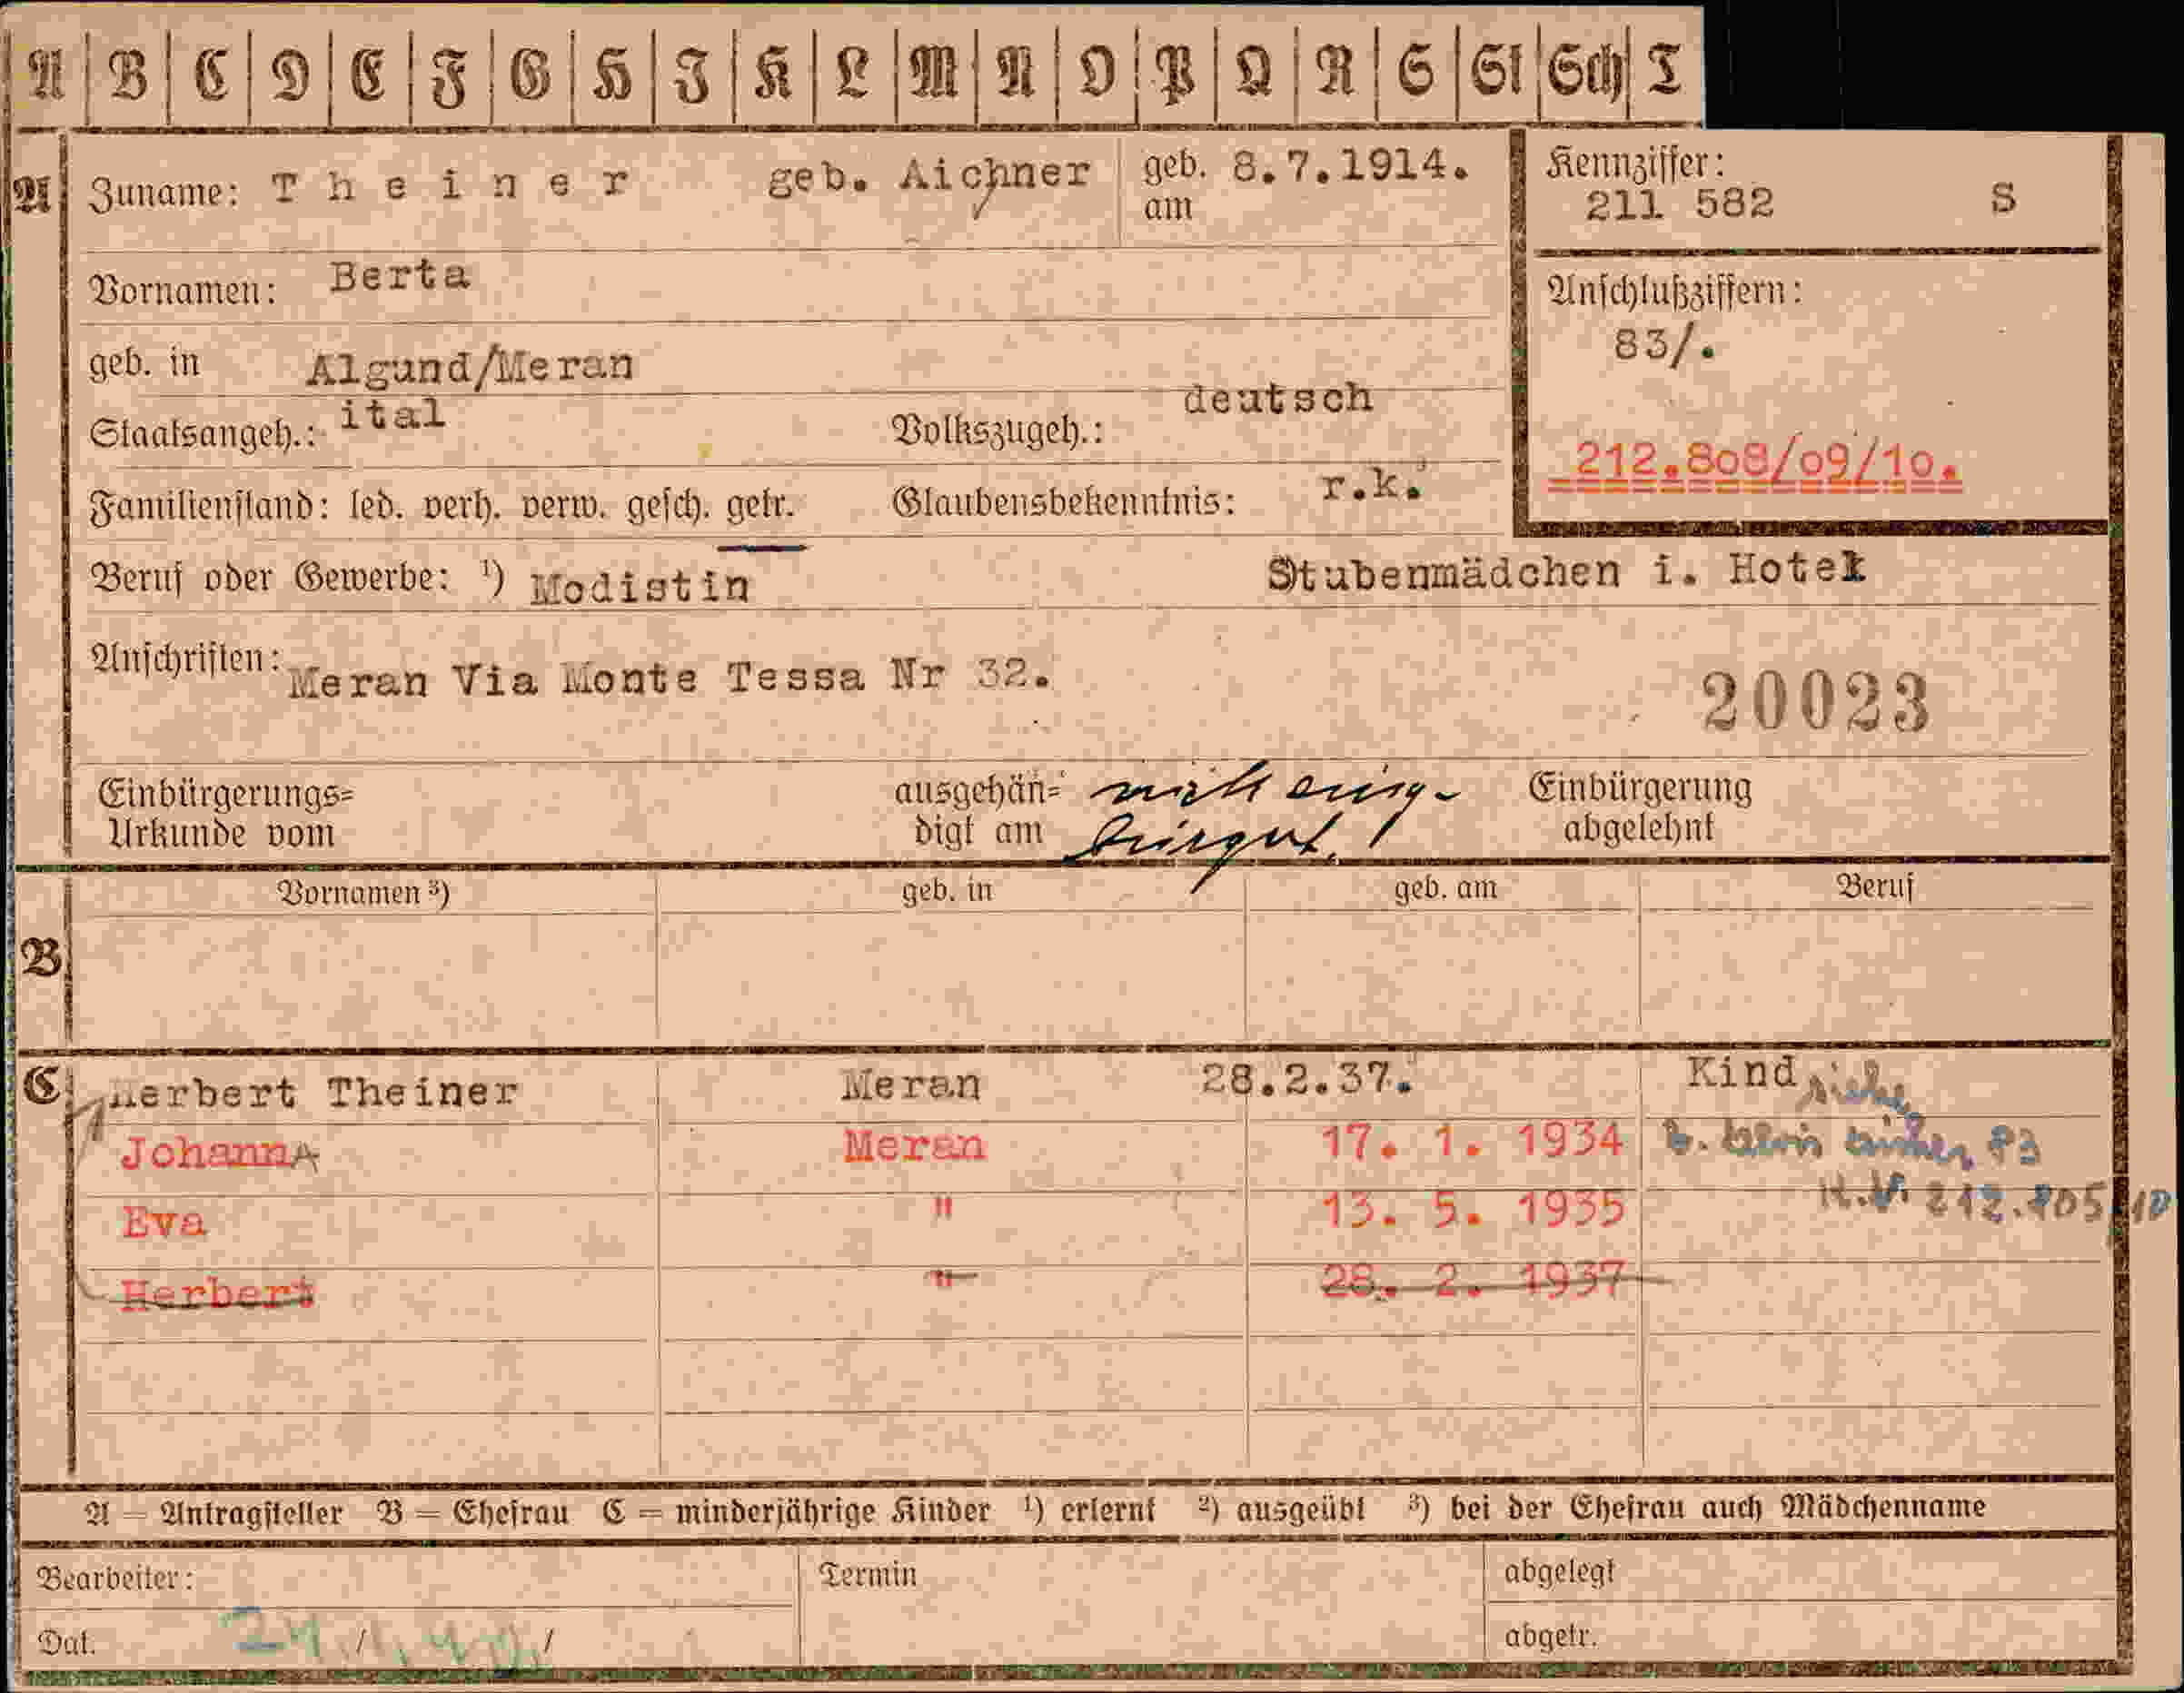 A B C D E F G H I K L M N O P Q R S St Sch T
A Zuname: Theiner geb. Aichner geb. am 8.7.1914.
Kennziffer: 211 582 S
Vornamen: Berta
Anschlußziffern: 83/.
geb. in Algund/Meran
Staatsangeh.: ital Volkszugeh.: deutsch
212.808/09/10.
Familienstand: led. verh. verw. gesch. getr. Glaubensbekenntnis: r.k.
Beruf oder Gewerbe: ¹) Modistin Stubenmädchen i. Hotel
Anschriften: Meran Via Monte Tessa Nr 32.
20023
Einbürgerungs=
Urkunde vom
ausgehän=
digt am
nicht einge-
bürgert.
Einbürgerung
abgelehnt
Vornamen ³) geb. in geb. am Beruf
B
C Herbert Theiner Meran 28.2.37. Kind siehe
JohannA Meran 17. 1. 1934 83
Eva " 13. 5. 1935 K.N. 212.805/10
Herbert " 28. 2. 1937
A = Antragsteller B = Ehefrau C = minderjährige Kinder ¹) erlernt ²) ausgeübt ³) bei der Ehefrau auch Mädchenname
Bearbeiter: Termin abgelegt
Dat. / / abgetr.